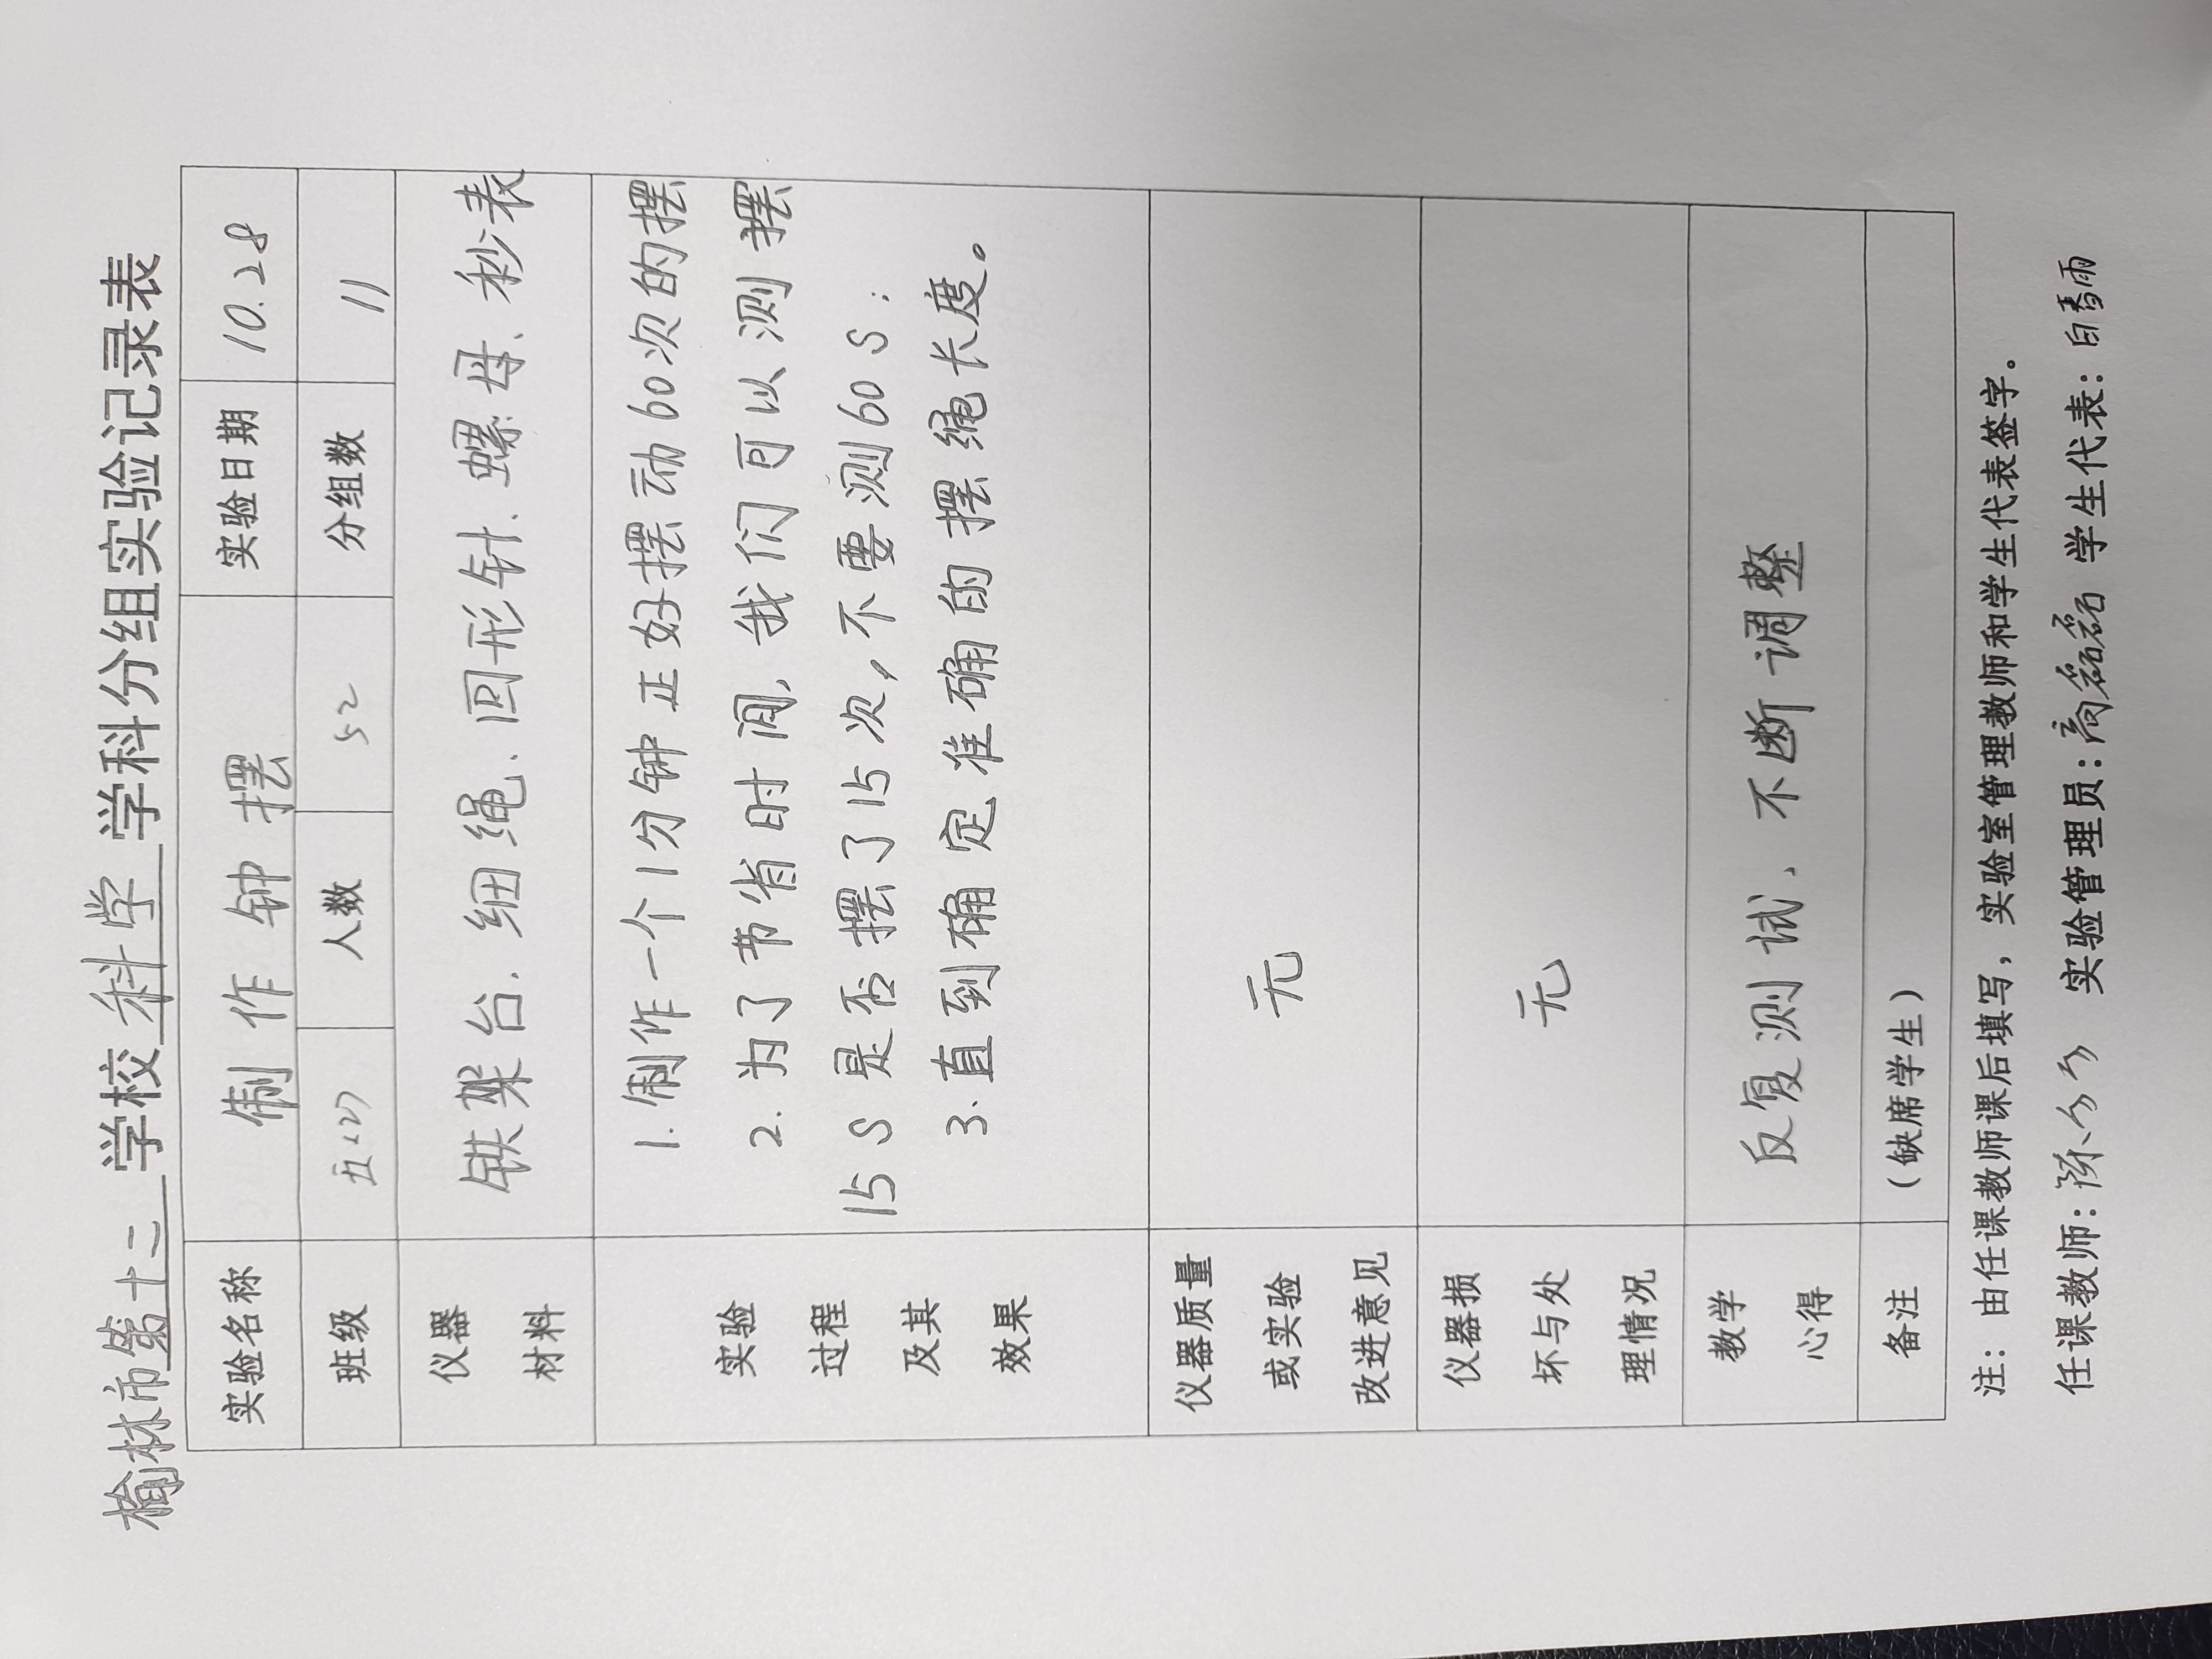 榆林市第十二学校科学学科分组实验记录表
实验名称 制作钟摆 实验日期 10.28
班级 五(2) 人数 52 分组数 11
仪器材料 铁架台、细绳、回形针、螺母、秒表
实验过程及其效果
1.制作一个1分钟正好摆动60次的摆
2.为了节省时间,我们可以测摆
15S是否摆了15次,不要测60S;
3.直到确定准确的摆绳长度。
仪器质量或实验改进意见 无
仪器损坏与处理情况 无
教学心得 反复测试、不断调整
备注 (缺席学生)
注:由任课教师课后填写,实验室管理教师和学生代表签字。
任课教师: 实验管理员:高磊磊 学生代表: